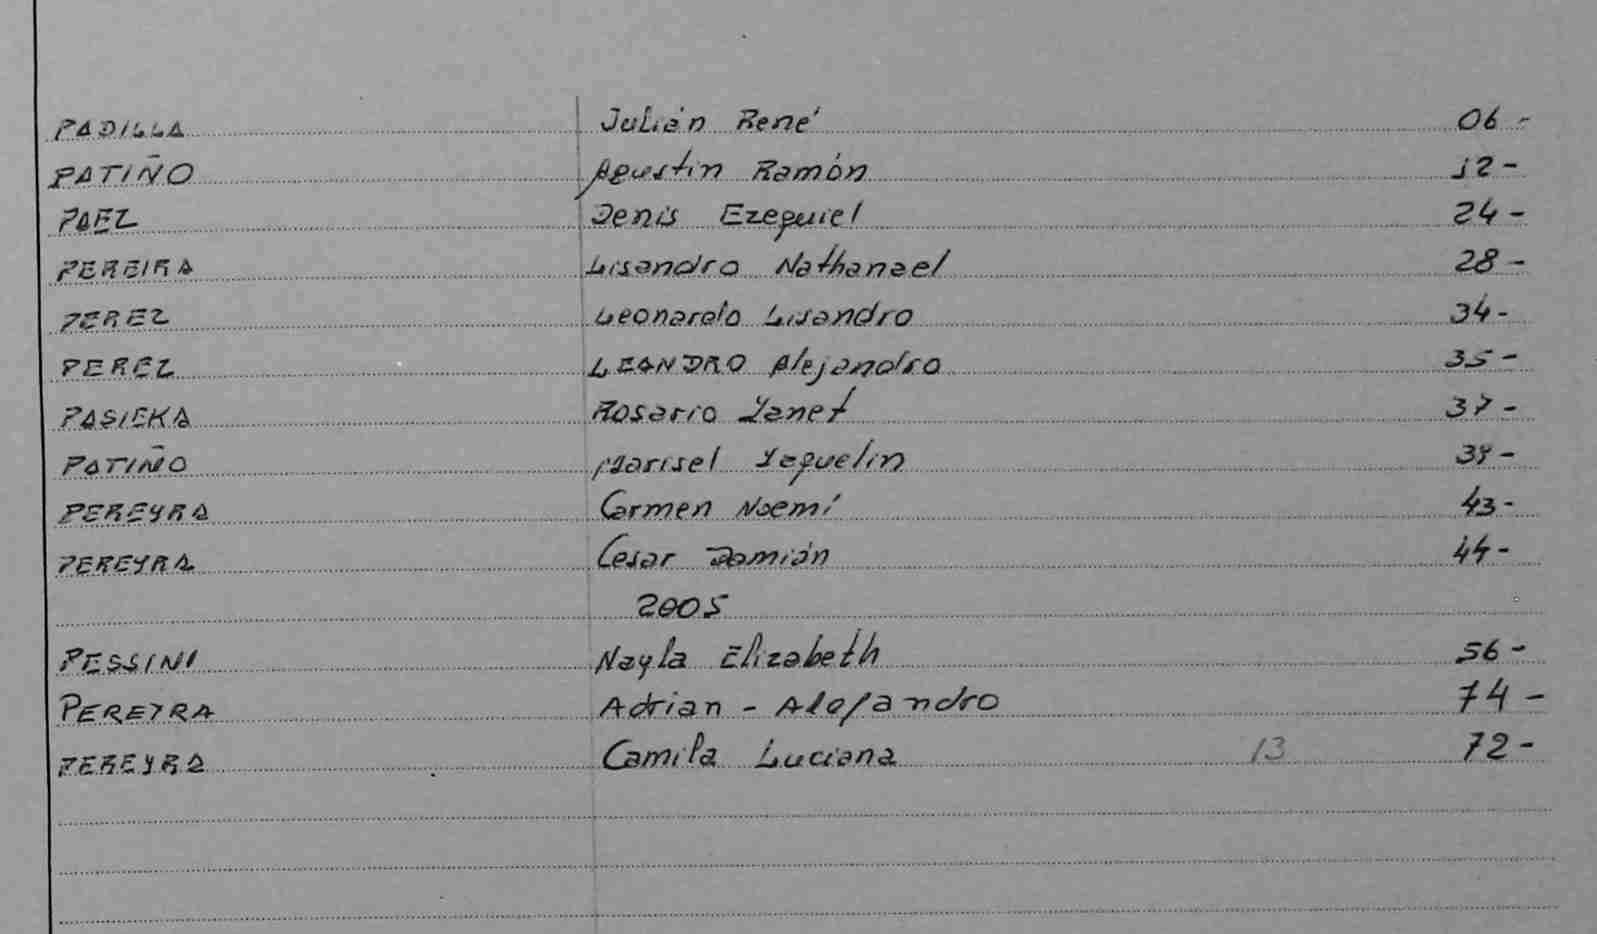 PADILLA Julián René 06-
PATIÑO Agustin Ramón 12-
PAEZ Denis Ezequiel 24-
PEREIRA Lisandro Nathanael 28-
PEREZ Leonardo Lisandro 34-
PEREZ LEANDRO Alejandro 35-
PASIEKA Rosario Yanet 37-
PATIÑO Marisel Yaquelin
PEREYRA Carmen Noemí 43-
PEREYRA Cesar Damián 44-
2005
PESSINI Nayla Elizabeth 56-
PEREYRA Adrian - Alejandro 74-
PEREYRA Camila Luciana 13 72-